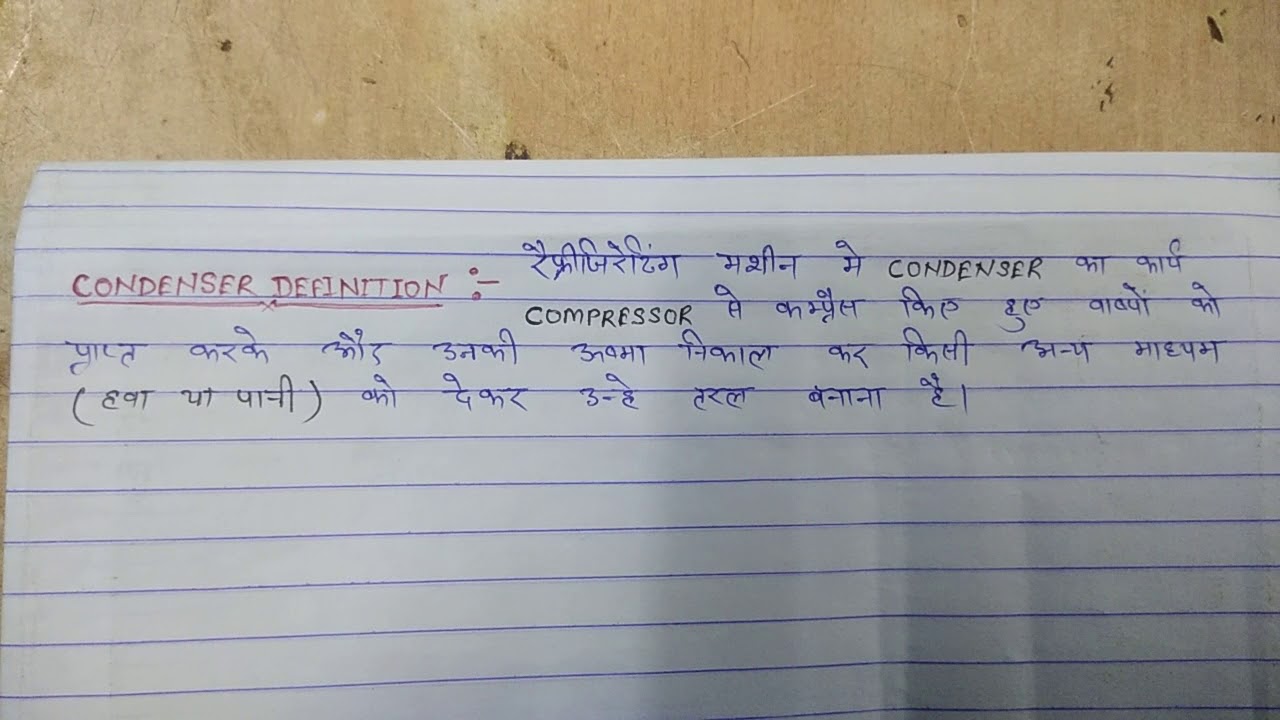 CONDENSER DEFINITION :- रैफ्रीजिरेटिंग मशीन मे CONDENSER का कार्य
COMPRESSOR से कम्प्रैस किए हुए वाष्पों को
प्राप्त करके और उनकी ऊष्मा निकाल कर किसी अन्य माध्यम
(हवा या पानी) को देकर उन्हे तरल बनाना है।